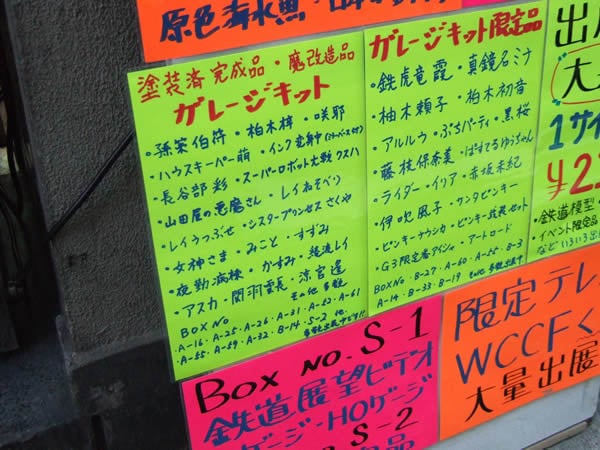 原色海水魚・日本
塗装済完成品・魔改造品
ガレージキット
・孫策伯符・柏木梓・咲耶
・ハウスキーパー萌・インク変身中
・長谷部彩・スーパーロボット大戦クスハ
・山田屋の悪魔さん・レイねそべり
・レイうつぶせ・シスタープリンセスさくや
・女神さま・みこと・すずみ
・夜勤病棟・かすみ・綾波レイ
・アスカ・関羽雲長・涼宮遥
その他多数
BOX No
・A-16・A-25・A-26・A-31・A-52・A-61
・A-65・A-69・A-32・B-14・S-2 他
多数出展中です!!
ガレージキット限定品
・銑虎竜霞・真鏡名ミナ
・柚木頼子・柏木初音
・アルルゥ・ぷちパーティ・黒桜
・藤枝保奈美・ぱすてるゆうちゃん
・ライダー・イリア・赤坂未紀
・伊吹風子・サンタピンキー
・ピンキーナウシカ・ピンキー武装セット
・G3限定春アイシャ・アートロード
BOX No・B-27・A-60・A-55・B-3
A-14・B-33・B-19 その他多数出展中
出
大
1サイ
¥2
・鉄道模型
・イベント限定品
などいろいろ出
Box No. S-1
鉄道展望ビデオ
ゲージ・HOゲージ
No S-2
限定テレ
WCCFく
大量出展